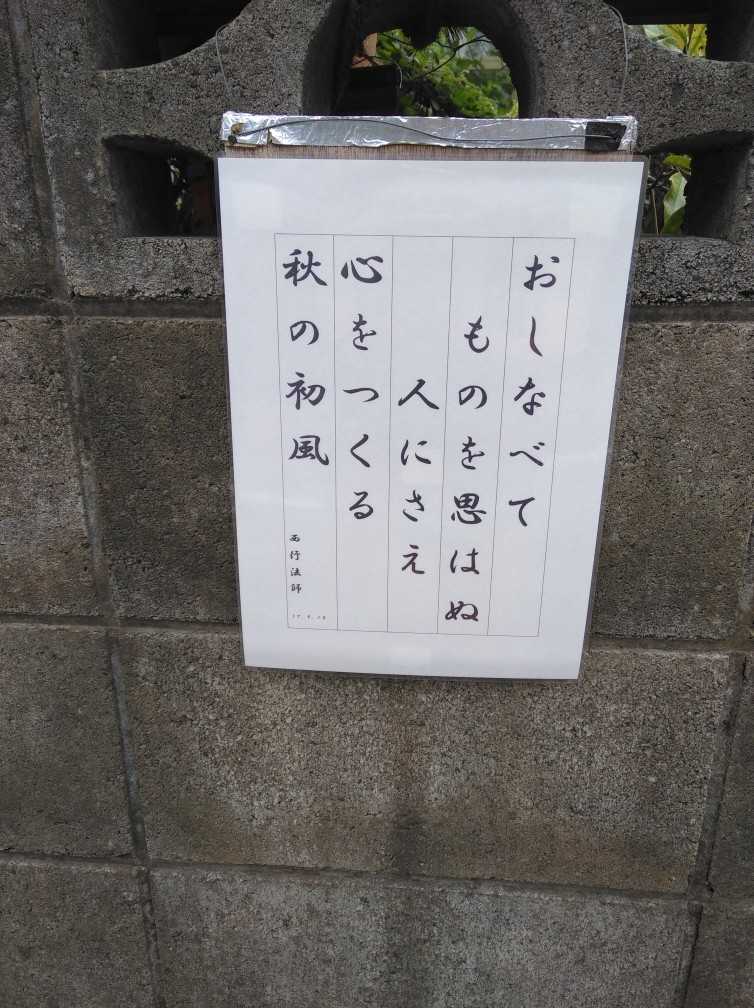 おしなべて
ものを思はぬ
人にさえ
心をつくる
秋の初風
西行法師